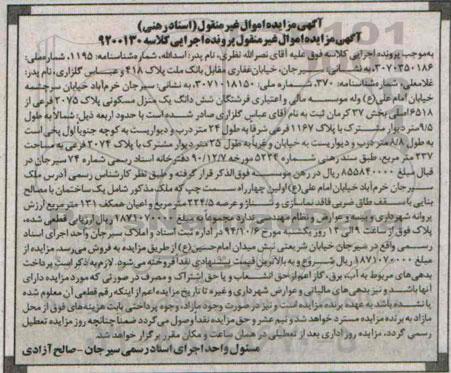 آگهی مزایده اموال غیر منقول (اسناد رهنی)
آگهی مزایده اموال غیر منقول پرونده اجرایی کلاسه ۹۲۰۰۱۳۰
به موجب پرونده اجرایی کلاسه فوق علیه آقای نصراله نظری، نام پدر: اسداله، شماره شناسنامه: ۱۱۹۵، شماره ملی:
۳۰۷۰۳۵۰۱۸۶، به نشانی: سیرجان، خیابان غفاری مقابل بانک ملت پلاک ۴۱۸ و عباس گلزاری، نام پدر:
غلامعلی، شماره شناسنامه: ۳۷۰، شماره ملی: ۳۰۷۱۰۱۸۱۵۰، به نشانی: سیرجان خرم آباد خیابان سرچشمه
خیابان امام علی(ع) وله موسسه مالی و اعتباری فرشتگان شش دانگ یک منزل مسکونی پلاک ۲۰۷۵ فرعی از
۶۵۱۸ اصلی بخش ۳۷ کرمان ثبت به نام آقای عباس گلزاری صادر شده است با حدود اربعه ذیل: شمالا به طول
۹/۵ متر دیوار مشترک با پلاک ۱۱۶۷ فرعی شرقا به طول ۲۴ متر درب و دیواریست به کوچه جنوبا اول پخی است
به طول ۸/۸ متر درب و دیواریست به خیابان و غربا به طول ۲۵ متر دیوار مشترک با پلاک ۲۰۷۴ فرعی به مساحت
۲۳۷ متر مربع، طبق سند رهنی شماره ۵۲۲۴ مورخه ۹۰/۱۲/۷ دفترخانه اسناد رسمی شماره ۷۴ سیرجان در
قبال مبلغ ۸۵۵۸۴۰۰۰۰ ریال در رهن موسسه فوق الذکر قرار گرفته و طبق نظر کارشناس رسمی آدرس ملک
سیرجان خرم آباد خیابان امام علی(ع) اولین چهارراه سمت چپ که ملک مذکور شامل یک ساختمان با مصالح
بنایی با سقف طاق ضربی فاقد نماسازی و عرصه ۲۲۴/۵ متر مربع و اعیان همکف ۱۳۱ متر مربع ارزش
پروانه شهرداری و بیمه و عوارض و نظام مهندسی ندارد مجموعا به مبلغ ۱۸۷۱۰۷۰۰۰۰ ریال ارزیابی قطعی شده،
پلاک فوق از ساعت ۹ الی ۱۲ روز یکشنبه مورخ ۹۴/۱۰/۶ در اداره ثبت اسناد و املاک سیرجان واحد اجرای اسناد
رسمی واقع در سیرجان خیابان شریعتی نبش میدان امام حسین(ع) از طریق مزایده به فروش می‌رسد. مزایده از
مبلغ ۱۸۷۱۰۷۰۰۰۰ ریال شروع و به بالاترین قیمت پیشنهادی نقدا فروخته می‌شود. لازم به ذکر است پرداخت
بدهی‌های مربوط به آب، برق، گاز اعم از حق انشعاب و یا حق اشتراک و مصرف در صورتی که مورد مزایده دارای
آنها باشد و نیز بدهی‌های مالیاتی و عوارض شهرداری و غیره تا تاریخ مزایده اعم از اینکه رقم قطعی آن معلوم شده
یا نشده باشد به عهده برنده مزایده است و نیز در صورت وجود مازاد، وجوه پرداختی بابت هزینه‌های فوق از محل
مازاد به برنده مسترد خواهد شد و نیم عشر و حق مزایده نقدا وصول می‌گردد ضمنا چنانچه روز مزایده تعطیل
رسمی گردد، مزایده روز اداری بعد از تعطیلی در همان ساعت و مکان مقرر برگزار خواهد شد.
مسئول واحد اجرای اسناد رسمی سیرجان - صالح آزادی